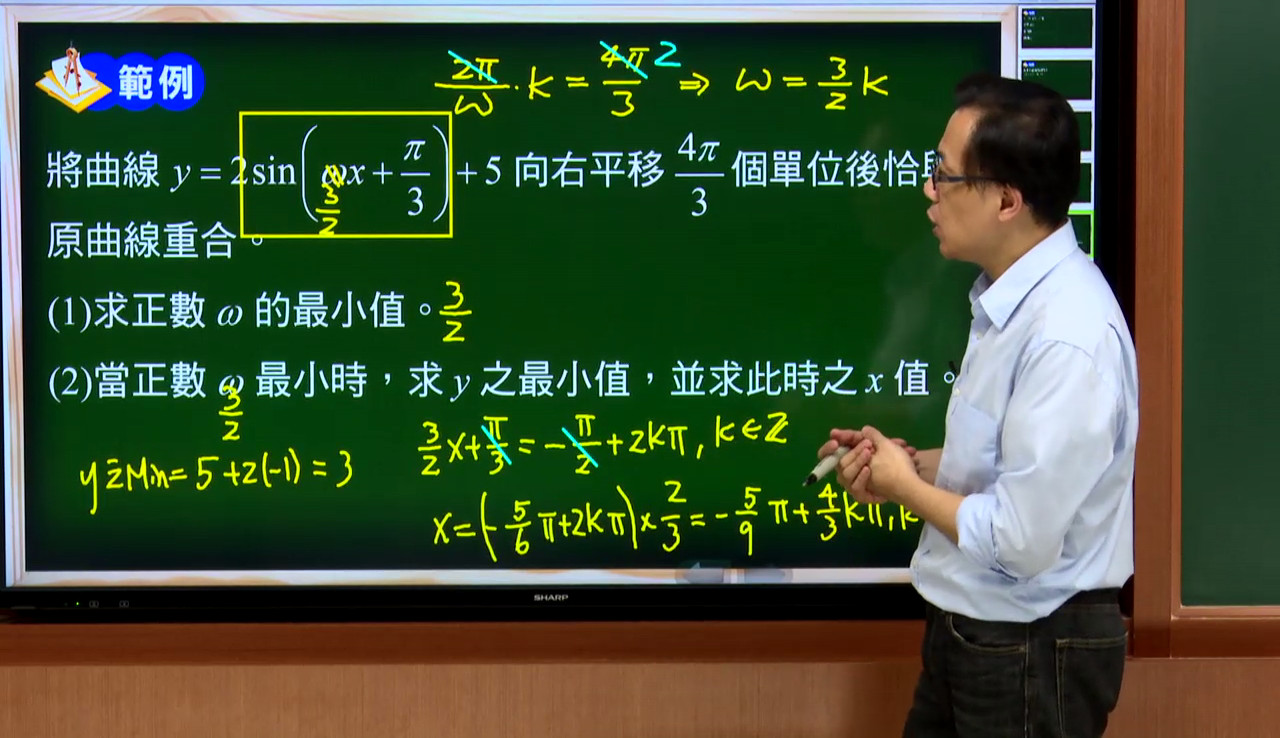 範例
2π/ω · k = 4π/3 2 ⇒ ω = 3/2 k
將曲線 y = 2sin(ωx + π/3) + 5 向右平移 4π/3 個單位後恰
3/2
原曲線重合。
(1)求正數 ω 的最小值。 3/2
(2)當正數 ω 最小時，求 y 之最小值，並求此時之 x 值。
3/2
3/2 x + π/3 = - π/2 + 2kπ, k ∈ ℤ
y之Min = 5 + 2(-1) = 3
x = (- 5/6 π + 2kπ) × 2/3 = - 5/9 π + 4/3 kπ, k
SHARP